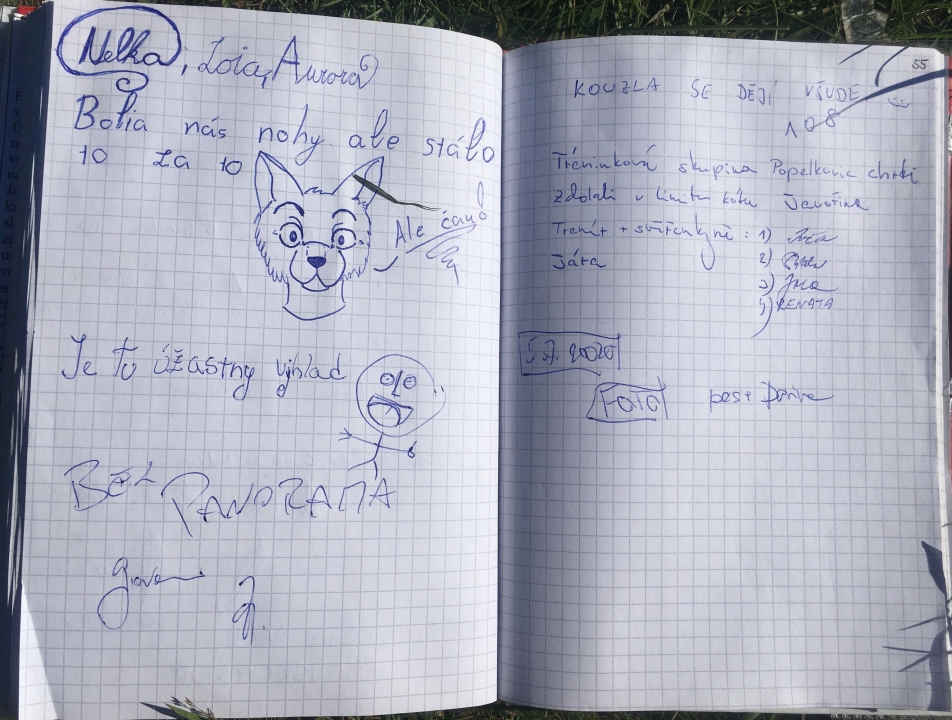 Nelka, Zoia, Aurora
Bolia nás nohy ale stálo
to za to
Ale čauo
Je tu úžastny vyhlad
BEZ PANORAMA
55
KOUZLA SE DĚJÍ VŠUDE
108
Tréninková skupina Popelkovic chrti
zdolali v limitu kótu Javořina
Trenér + svěřenkyně: 1)
Jára 2)
3) Jna
4) RENATA
FOTO